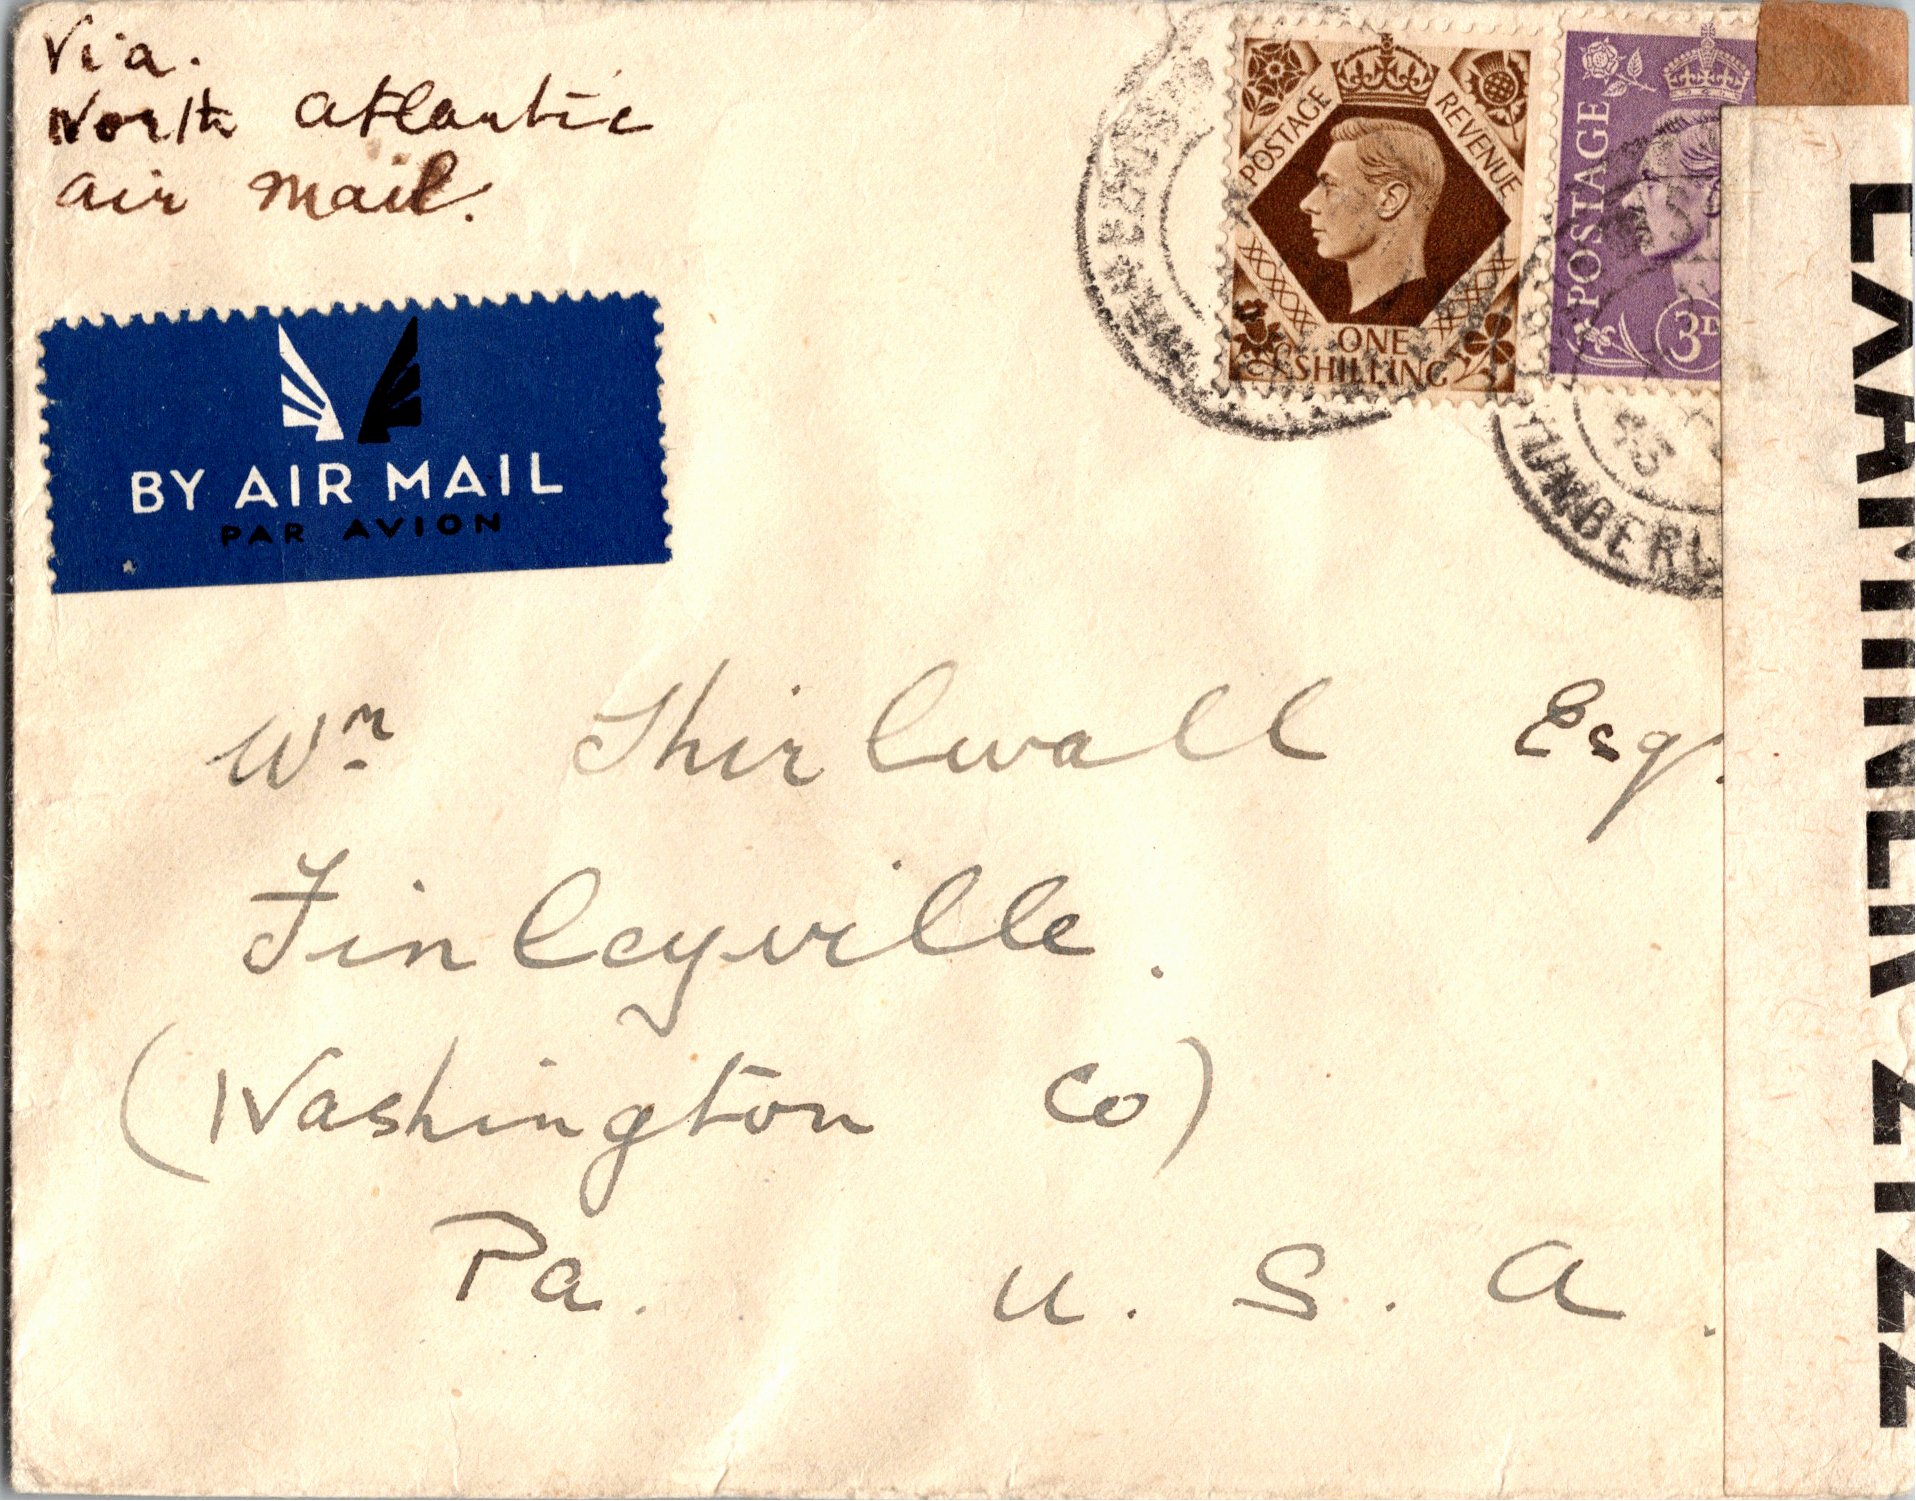 Via.
North Atlantic
air mail.
POSTAGE
REVENUE
ONE
SHILLING
POSTAGE
3D
45
BY AIR MAIL
PAR AVION
Wm Thirlwall Esq.
Finleyville.
(Washington Co)
Pa. U. S. A.
EXAMINER